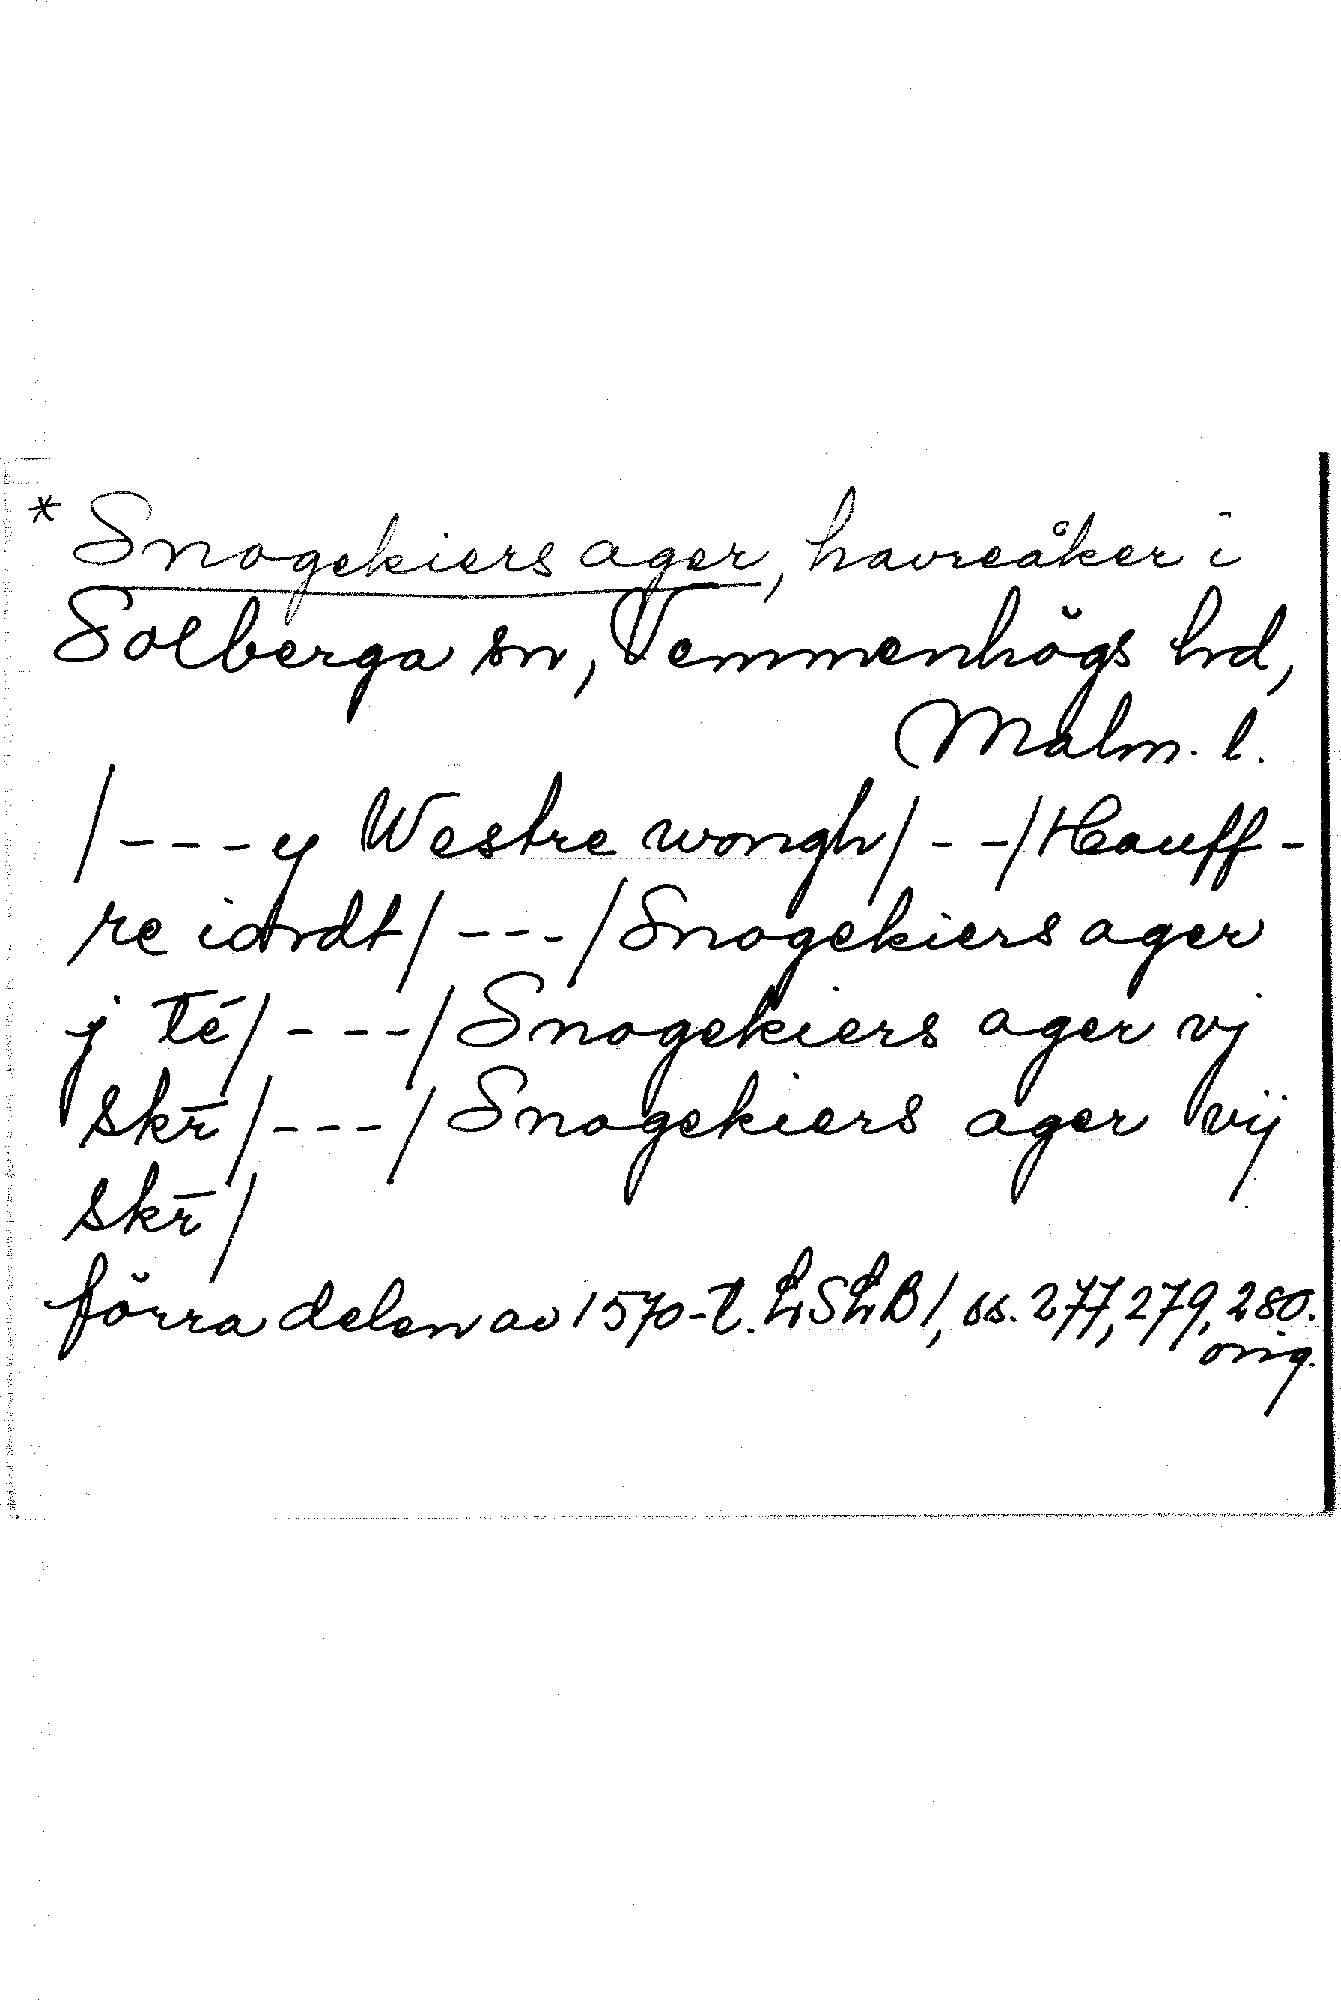 * Snogekiers ager, havreåker i
Solberga sn, Vemmenhögs hd,
Malm. l.
/---y Westre wongh/--/Hauff-
re iordt/---/Snogekiers ager
j té/---/Snogekiers ager vj
skr̄/---/Snogekiers ager vij
skr̄/
förra delen av 1570-t. LSLB 1, ss. 277, 279, 280.
orig.